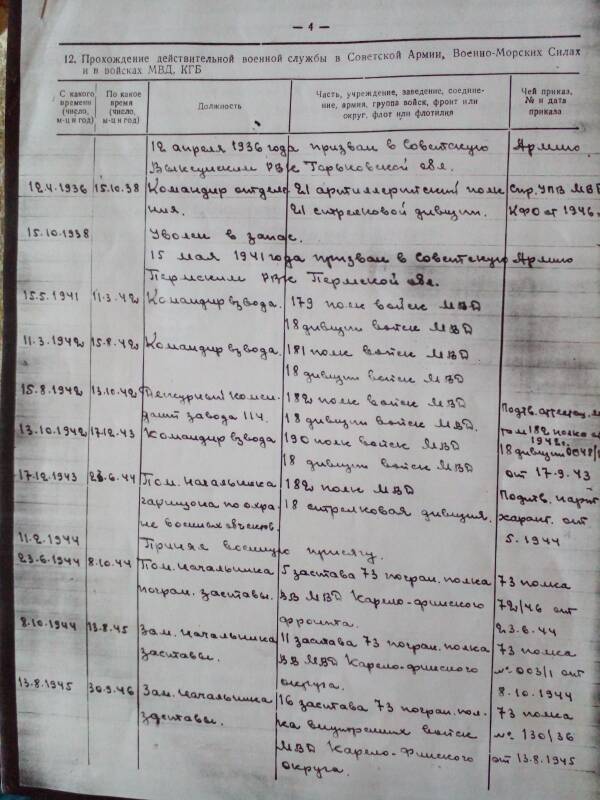 — 4 —
12. Прохождение действительной военной службы в Советской Армии, Военно-Морских Силах
и в войсках МВД, КГБ
С какого времени (число, м-ц и год) По какое время (число, м-ц и год) Должность Часть, учреждение, заведение, соединение, армия, группа войск, фронт или округ, флот или флотилия Чей приказ, № и дата приказа
12 апреля 1936 года призван в Советскую Армию
Выксунским РВК Горьковской обл.
12.4.1936 15.10.38 Командир отделе 21 артиллерийский полк Спр. УПВ МВД
ния. 21 стрелковой дивизии. КФО от 1946
15.10.1938 Уволен в запас.
15 мая 1941 года призван в Советскую Армию
Пермским РВК Пермской обл.
15.5.1941 11.3.42 Командир взвода. 179 полк войск МВД
18 дивизии войск МВД
11.3.1942 15.8.42 Командир взвода. 181 полк войск МВД
18 дивизии войск МВД
15.8.1942 13.10.42 Дежурный комен- 182 полк войск МВД
дант завода 114. 18 дивизии войск МВД. Подтв. аттестац.
13.10.1942 17.12.43 Командир взвода 190 полк войск МВД 182 полка
1942г.
18 дивизии войск МВД 18 дивизии 0048/
17.12.1943 23.6.44 Пом. начальника 182 полк МВД от 17.9.43
гарнизона по охра- 18 стрелковая дивизия. Подтв. парт.
не военных объектов. характ. от
11.2.1944 Принял военную присягу. 5.1944
23.6.1944 8.10.44 Пом. начальника 5 застава 73 погран. полка 73 полка
погран. заставы. ВВ МВД Карело-финского 72/46 от
фронта. 23.6.44
8.10.1944 13.8.45 Зам. начальника 11 застава 73 погран. полка 73 полка
заставы. ВВ МВД Карело-финского № 003/1 от
округа. 8.10.1944
13.8.1945 30.9.46 Зам. начальника 16 застава 73 погран. пол- 73 полка
заставы. ка внутренних войск № 130/36
МВД Карело-Финского от 13.8.1945
округа.